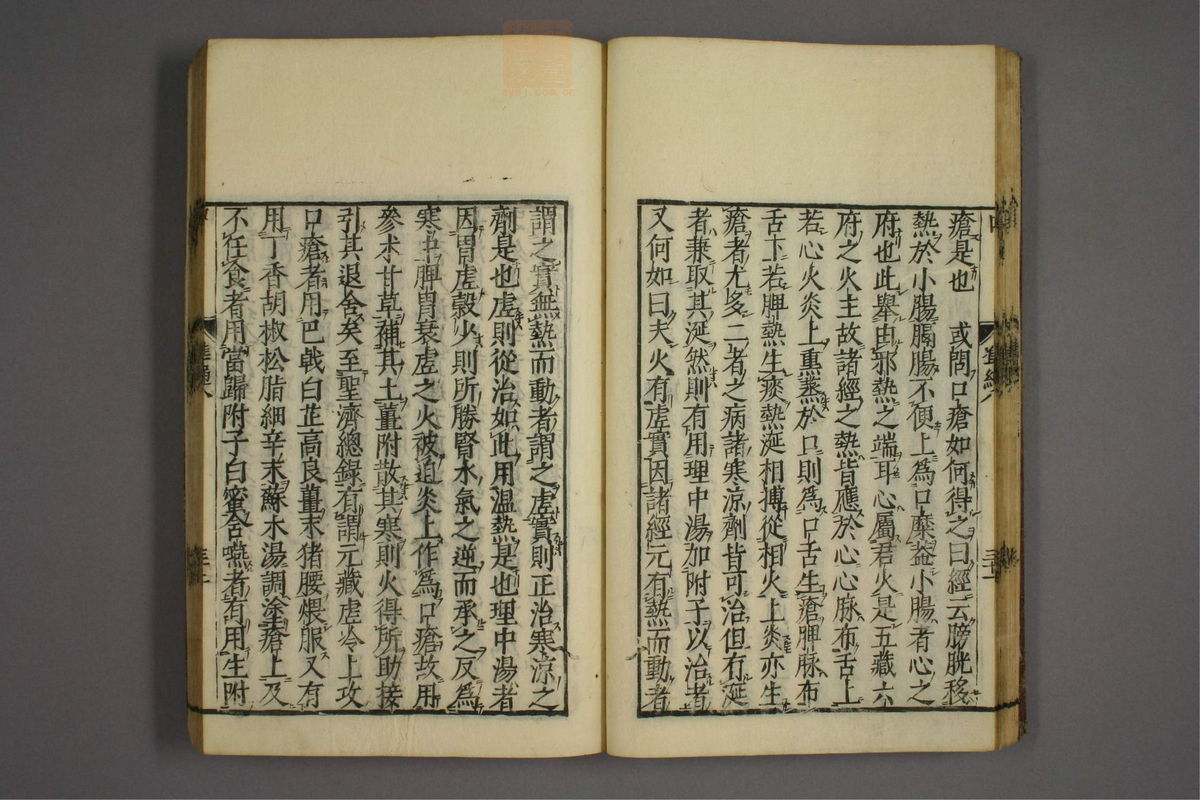 瘡是也　或問口瘡如何得之曰經云膀胱移
熱於小腸膈腸不便上爲口糜盖小腸者心之
府也此舉由邪熱之端耳心屬君火是五藏六
府之火主故諸經之熱皆應於心心脉布舌上
若心火炎上熏蒸於口則爲口舌生瘡脾脉布
舌下若脾熱生痰熱涎相搏從相火上炎亦生
瘡者尤多二者之病諸寒涼劑皆可治但有涎
者兼取其涎然則有用理中湯加附子以治者
又何如曰夫火有虛實因諸經元有熱而動者
謂之實無熱而動者謂之虛實則正治寒涼之
劑是也虛則從治如此用温熱是也理中湯者
因胃虛穀少則所勝腎水氣之逆而承之反爲
寒中脾胃衰虛之火被迫炎上作爲口瘡故用
參术甘草補其土薑附散其寒則火得所助接
引其退舍矣至聖濟總錄有謂元藏虛冷上攻
口瘡者用巴戟白芷高良薑末猪腰煨服又有
用丁香胡椒松脂細辛末蘇木湯調塗瘡上及
不任食者用當歸附子白蜜含嚥者有用生附